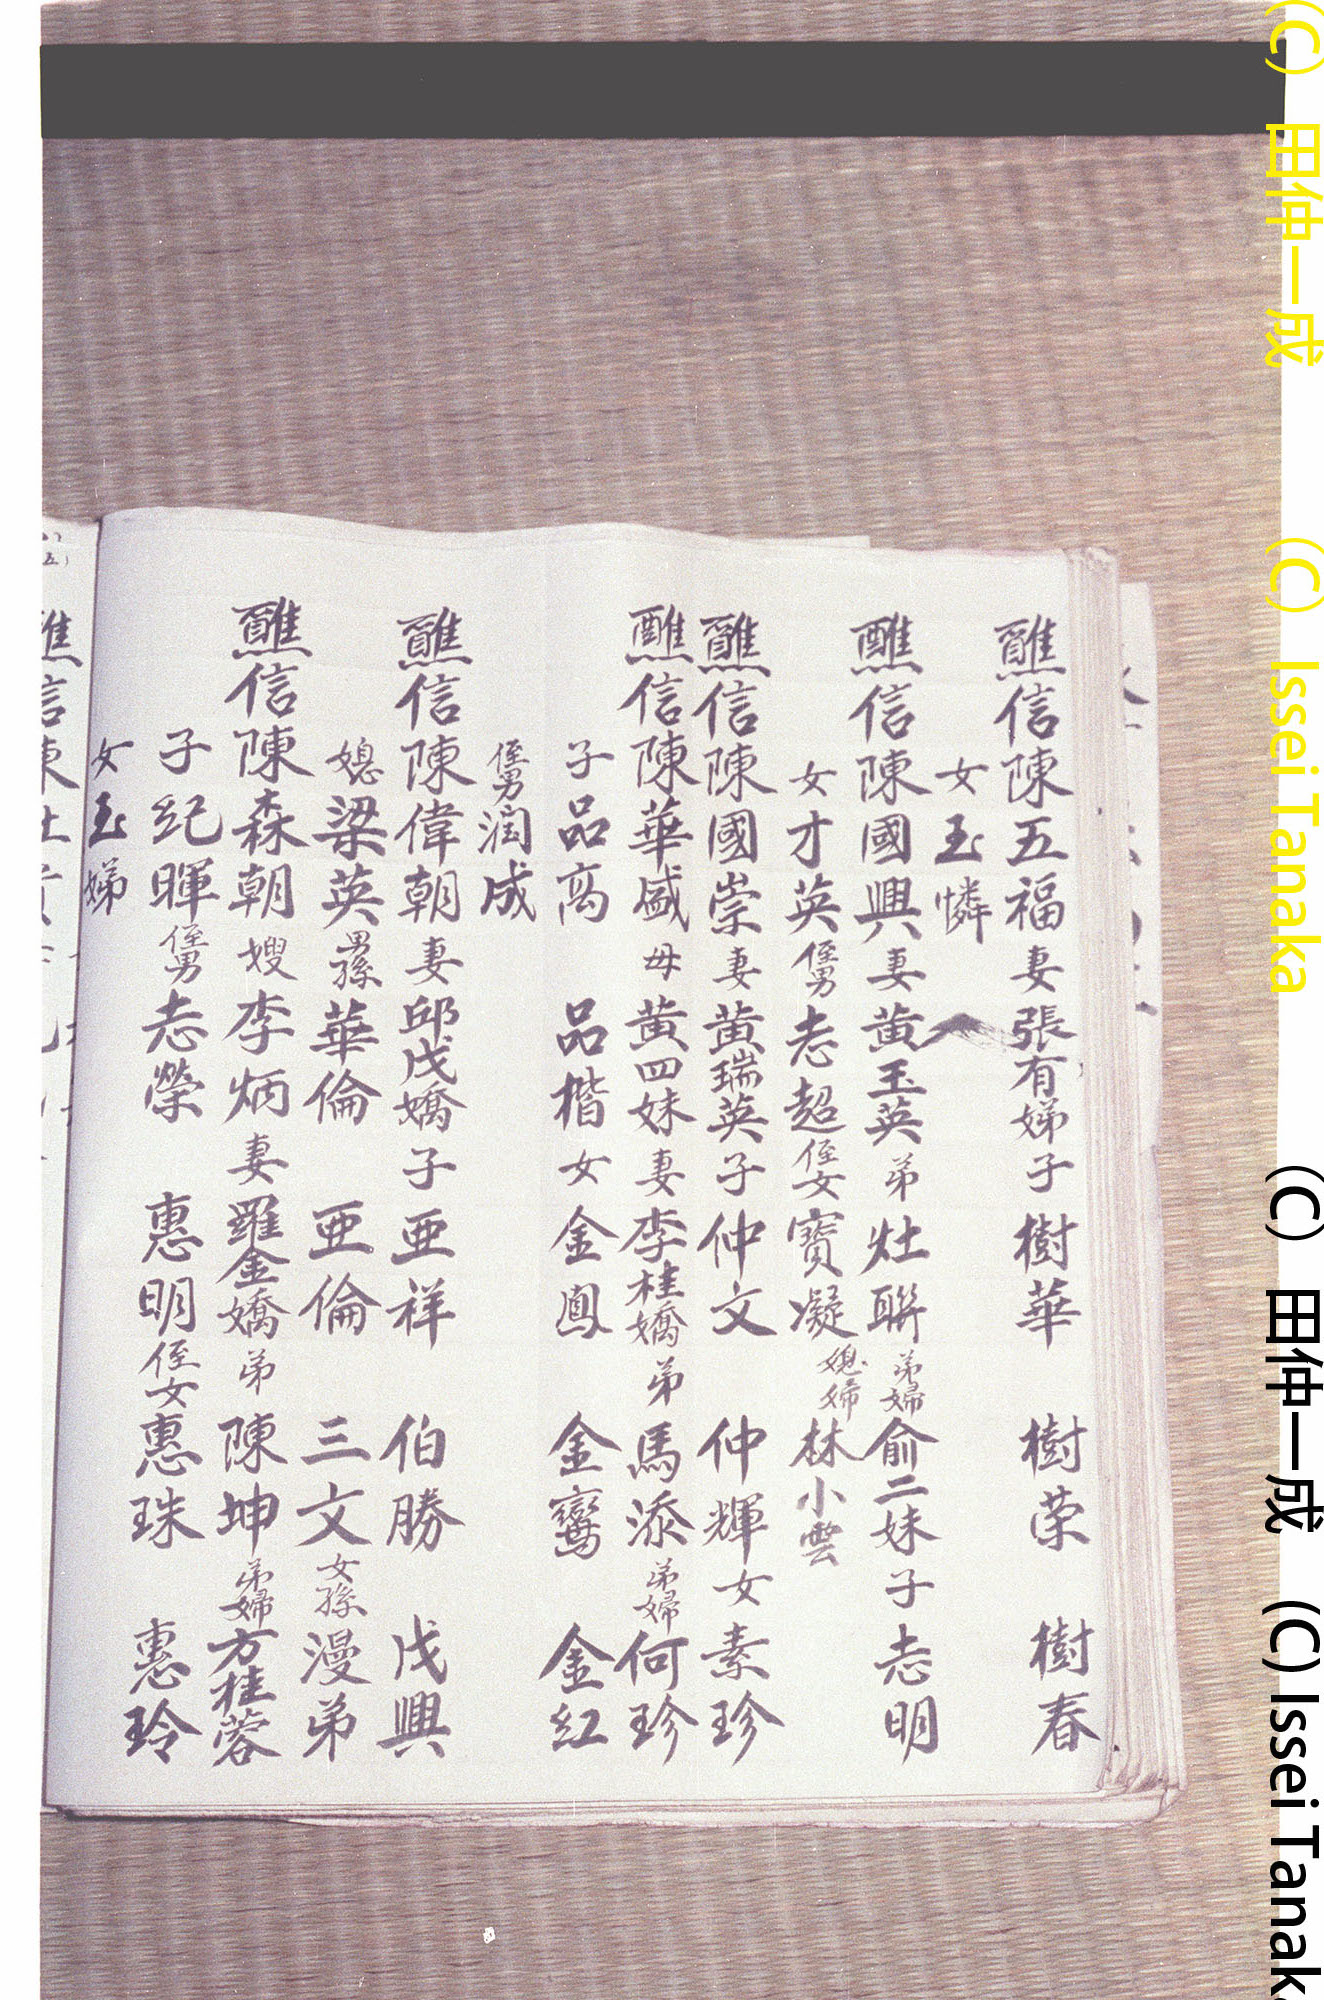 醮信陳五福妻張有娣子樹華 樹荣 樹春
女玉憐
醮信陳國興妻黃玉英弟灶聯弟婦俞二妹子志明
女才英侄男志超侄女寶凝媳婦林小雲
醮信陳國崇妻黃瑞英子仲文 仲輝女素珍
醮信陳華盛母黃四妹妻李桂嬌弟馬添弟婦何珍
子品高 品楷女金鳳 金鸞 金紅
侄男润成
醮信陳偉朝妻邱戊嬌子亜祥 伯勝 戊興
媳梁英男孫華倫 亜倫 三文女孫漫弟
醮信陳森朝嫂李炳妻羅金嬌弟陳坤弟婦方桂蓉
子紀暉侄男志榮 惠明侄女惠珠 惠玲
女玉娣
(C) 田仲一成 (C) Issei Tanaka (C) 田仲一成 (C) Issei Tanak